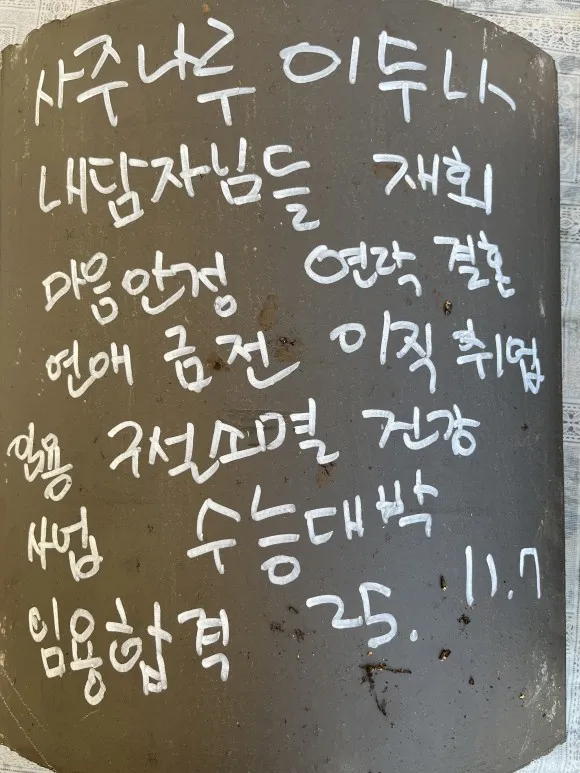 사주나루 이두나
내담자님들 재회
마음안정 연락 결혼
연애 금전 이직 취업
임용 구설소멸 건강
사업 수능대박
임용합격 25. 11.7